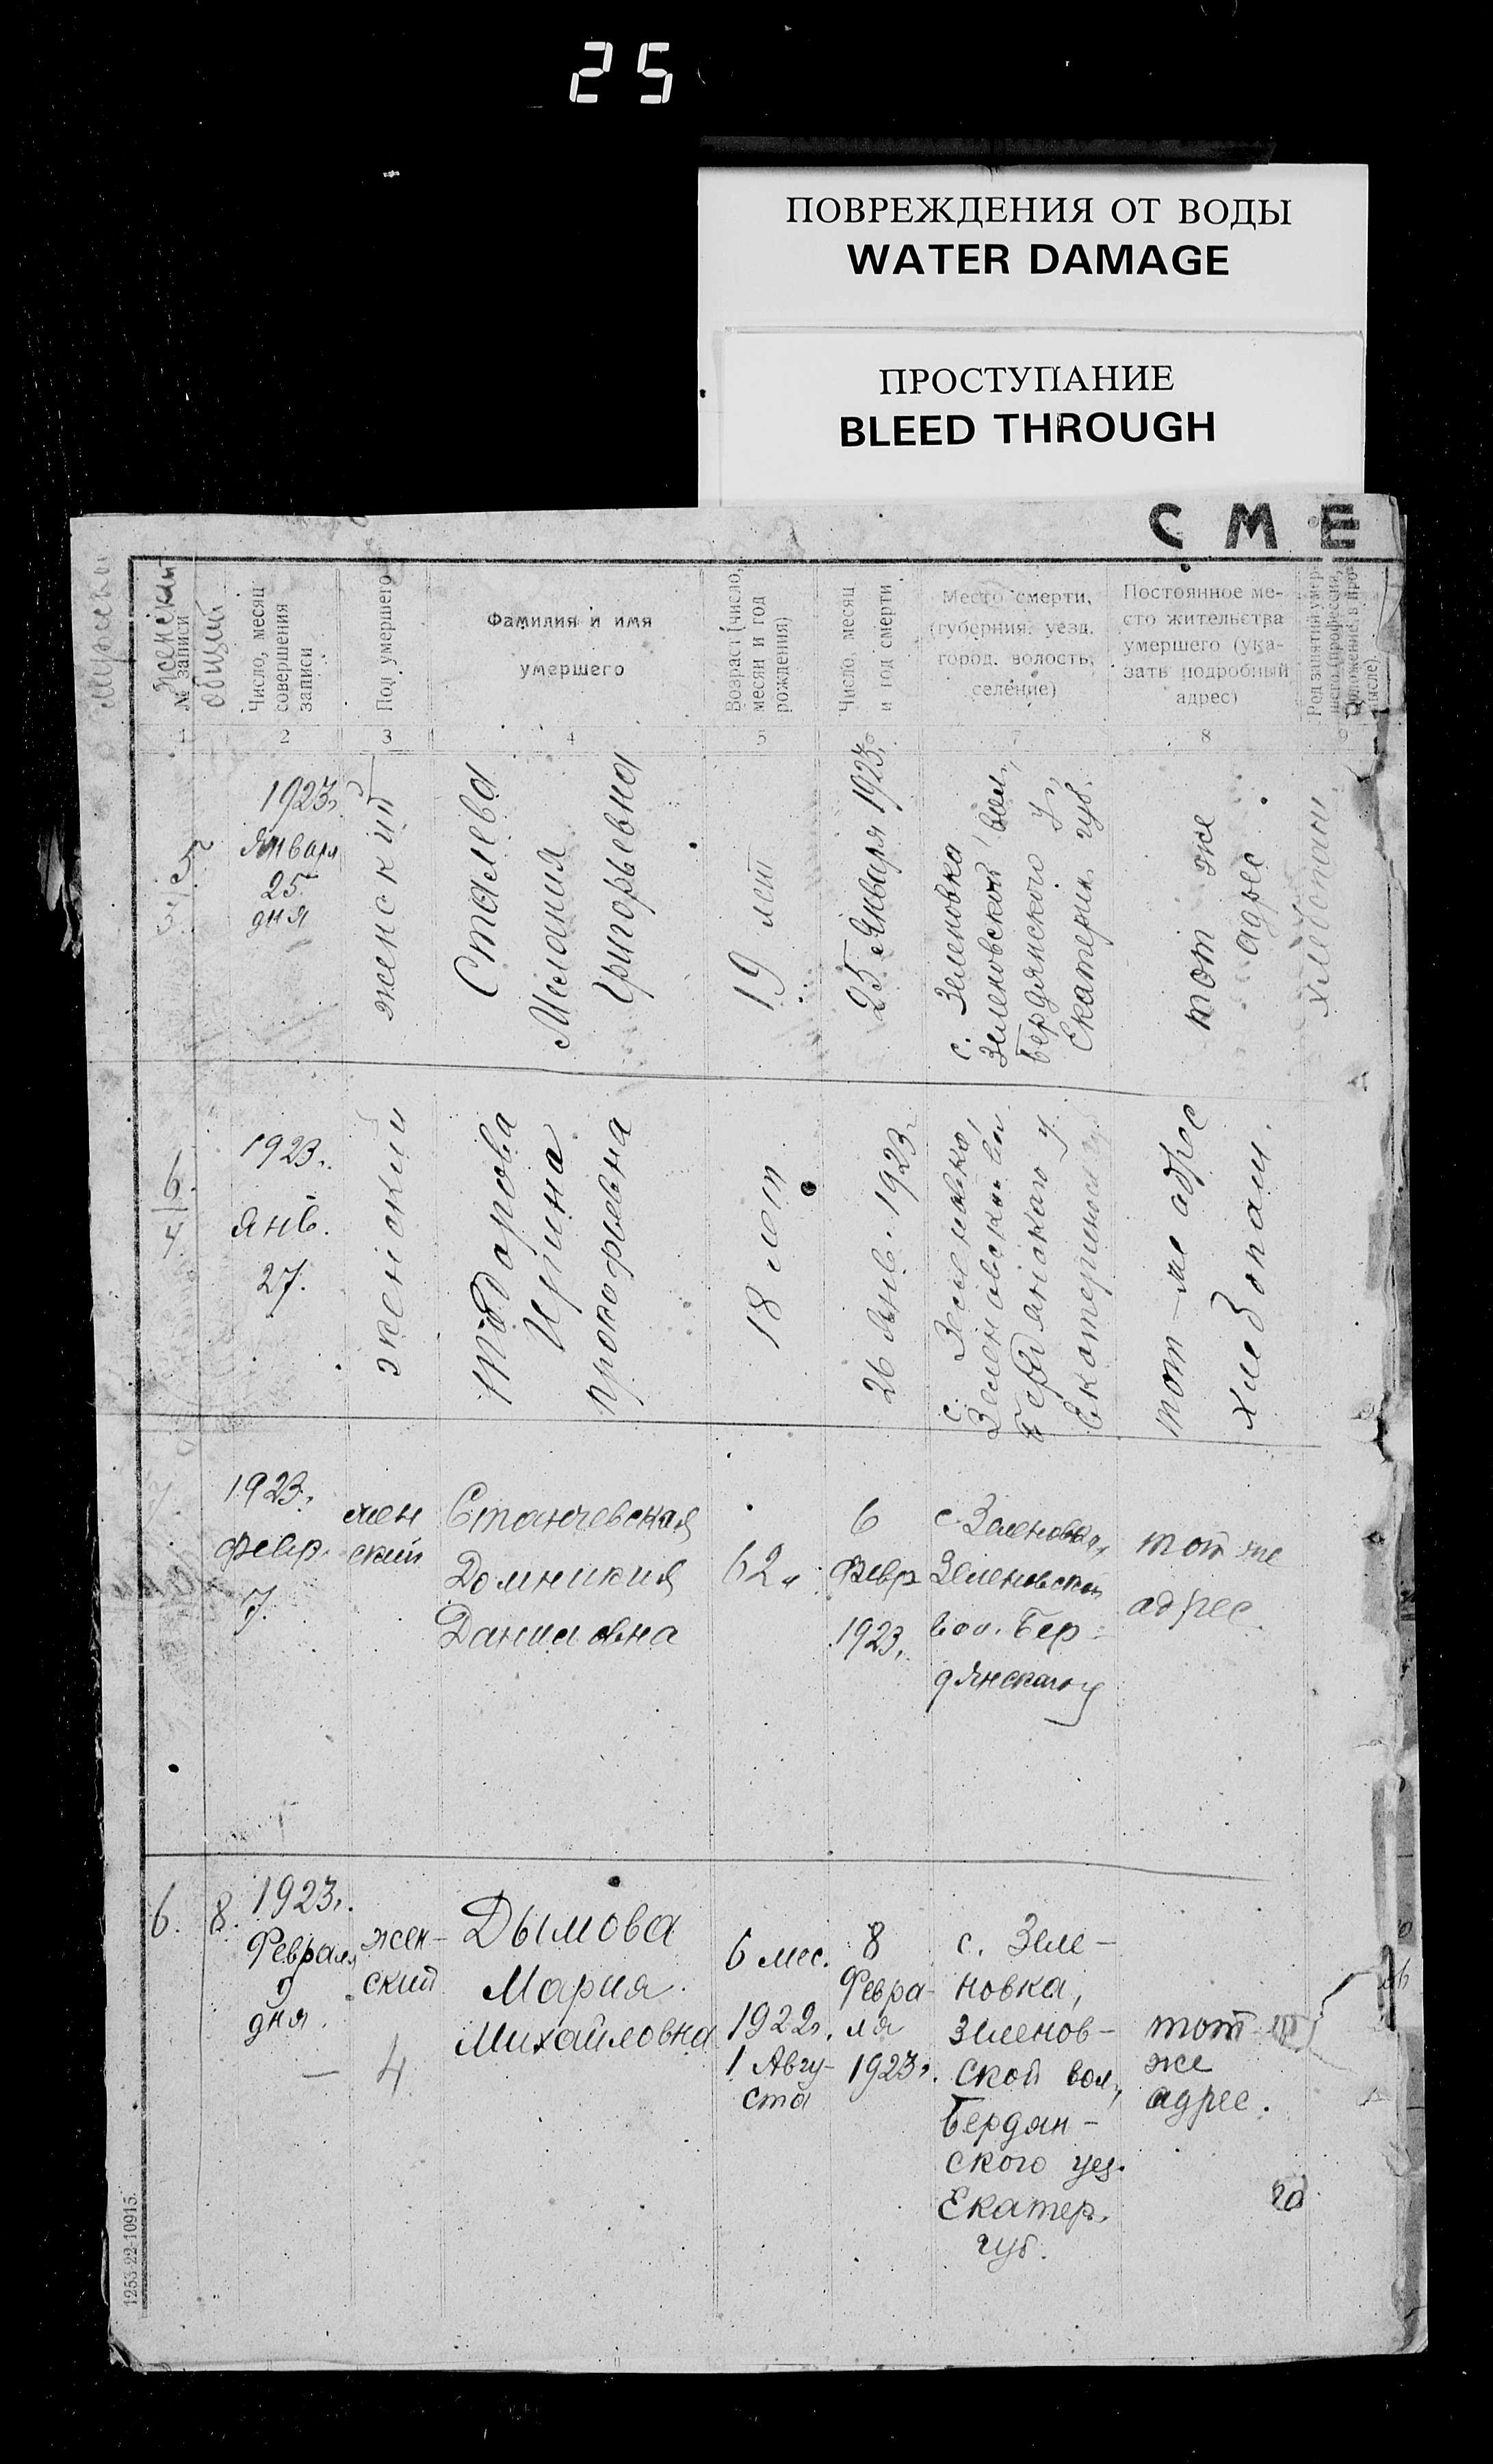 25
ПОВРЕЖДЕНИЯ ОТ ВОДЫ
WATER DAMAGE
ПРОСТУПАНИЕ
BLEED THROUGH
С М Е
мужской
женский
№ записи
общий
Число, месяц
совершения
записи
Пол умершего
Фамилия и имя
умершего
Возраст (число,
месяц и год
рождения)
Число, месяц
и год смерти
Место смерти,
(губерния, уезд,
город, волость,
селение)
Постоянное ме-
сто жительства
умершего (ука-
зать подробный
адрес)
2
3
4
5
7
8
5
1923г.
Января
25
дня
женский
Сталева
Мелания
Григорьевна
19 лет
25 Января 1923г.
с. Зеленовка
Зеленовской вол.,
Бердянского у.,
Екатерин. губ.
тот же
адрес.
6.
4.
1923г.
янв.
27.
женский
Тодорова
Ирина
прокофьевна
18 лет
26 Янв. 1923г.
с. Зеленовка,
Зеленовской вол.
Бердянского у.
тот-же адрес
7.
1923г.
февр.
7.
жен
ский
Станчевская
Домникия
Даниловна
62
6
Февр
1923г.
с. Зеленовка,
Зеленовской
вол. Бер-
дянского у
тот же
адрес
6.
8.
1923г.
Февраля
9
дня.
жен-
ский
4
Дымова
Мария
Михайловна
6 мес.
1922г.
1 Авгу-
ста
8
Февра-
ля
1923г.
с. Зеле-
новка,
Зеленов-
ской вол.,
Бердян-
ского уез.
Екатер.
губ.
тот
же
адрес.
1253-22-10915.